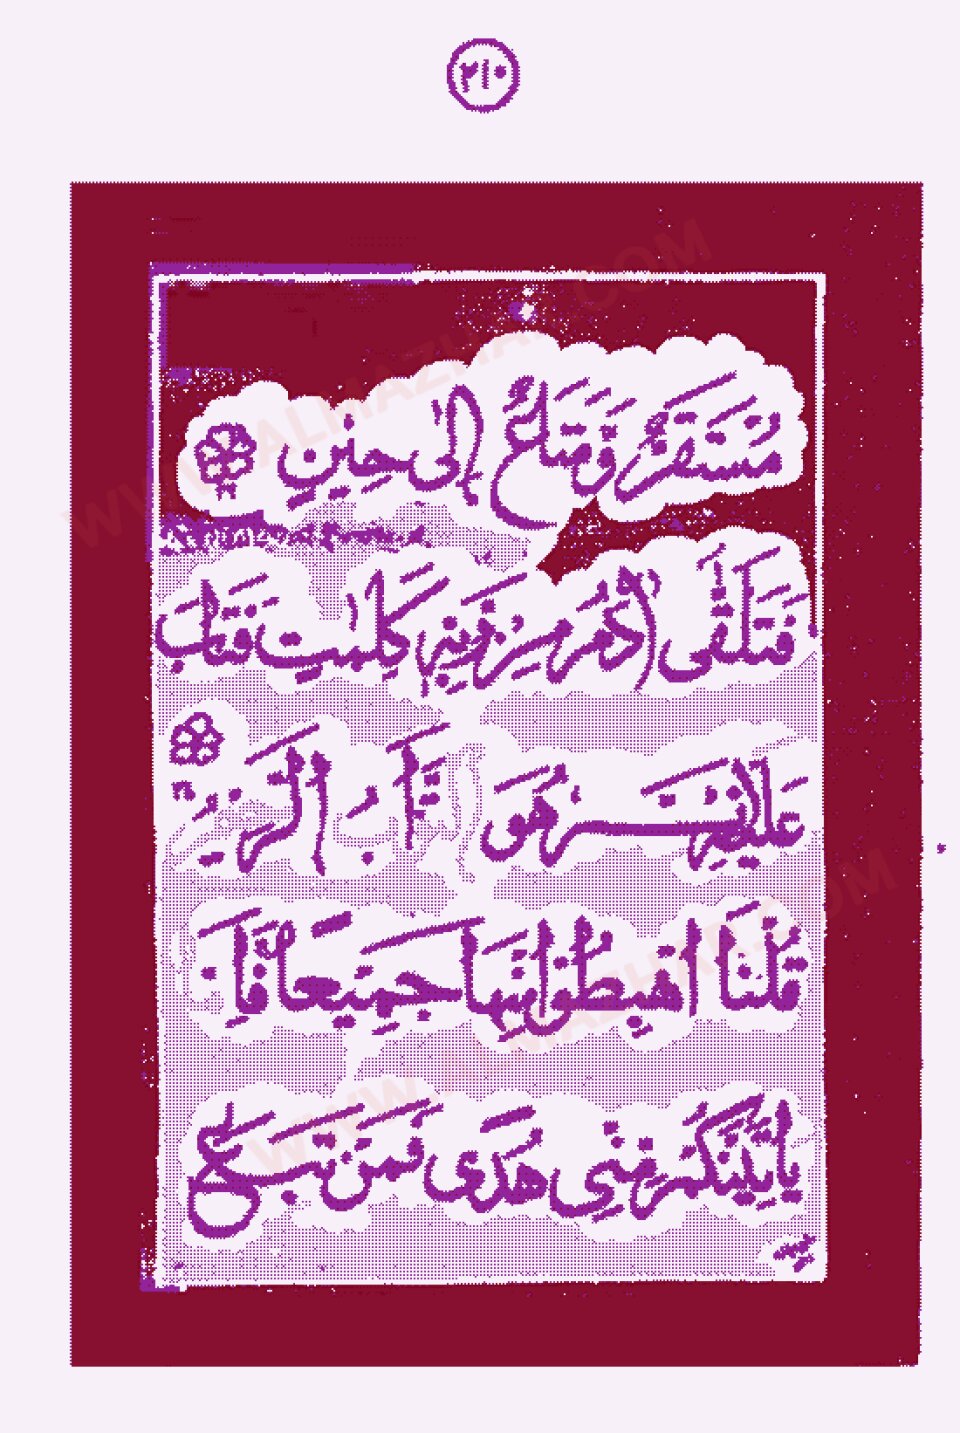 ٢١٠
مُسْتَقَرٌّ وَّمَتَاعٌ اِلٰى حِیْنٍ ٣٦
فَتَلَقّٰۤى اٰدَمُ مِنْ رَّبِّهٖ كَلِمٰتٍ فَتَابَ
عَلَیْهِ اِنَّهٗ هُوَ التَّوَّابُ الرَّحِیْمُ ٣٧
قُلْنَا اهْبِطُوْا مِنْهَا جَمِیْعًا فَاِمَّا
یَاْتِیَنَّكُمْ مِّنِّیْ هُدًى فَمَنْ تَبِعَ
WWW.ALMAZHAR.COM
WWW.ALMAZHAR.COM